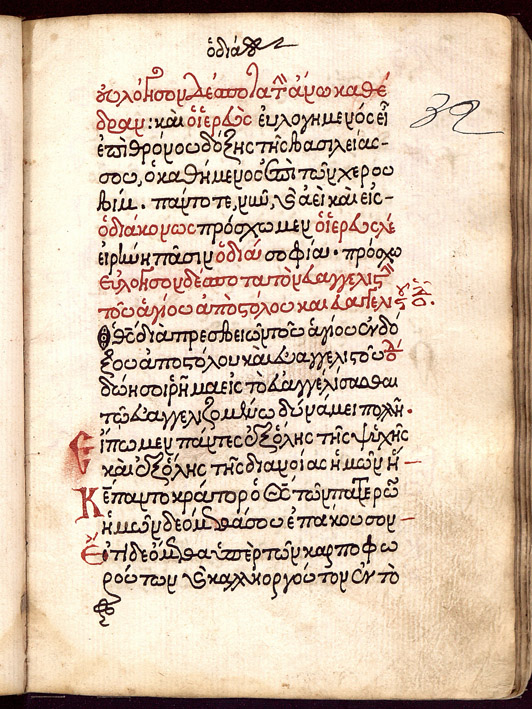 ὁ διά
εὐλόγησον δέσποτα τὴν ἄνω καθέ
δραν: καὶ ὁ ἱερεὺς εὐλογημένος εἶ
ἐπὶ θρόνου δόξης τῆς βασιλείας
σου, ὁ καθήμενος ἐπὶ τῶν χερου
βίμ. πάντοτε, νῦν, καὶ ἀεὶ καὶ εἰς
ὁ διάκονος πρόσχωμεν ὁ ἱερεὺς λέ
εἰρήνη πᾶσιν ὁ διά σοφία. πρόσχω
εὐλόγησον δέσποτα τὸν εὐαγγελιστὴν
τοῦ ἁγίου ἀποστόλου καὶ εὐαγγελις
ὁ θς διὰ πρεσβειῶν τοῦ ἁγίου ἐνδό
ξου ἀποστόλου καὶ εὐαγγελιστοῦ
δώη σοι ῥῆμα εἰς τὸ εὐαγγελίσασθαι
τῷ εὐαγγελιζομένῳ δυνάμει πολλῇ.
Εἴπωμεν πάντες ἐξ ὅλης τῆς ψυχῆς
καὶ ἐξ ὅλης τῆς διανοίας ἡμῶν
Κε παντοκράτορ ὁ Θς τῶν πατέρων
ἡμῶν δεόμεθά σου ἐπάκουσον
Ἔτι δεόμεθα ὑπὲρ τῶν καρποφο
ρούντων καὶ καλλιεργούντων ἐν τῷ